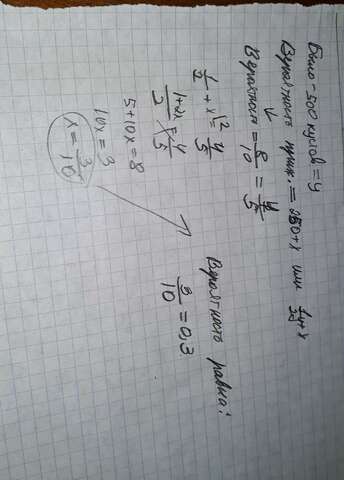 Было - 500 кустов = y
Вероятность приж. = 250 + x или 1/2 y + x
Вероятность = 8/10 = 4/5
1/2 + x = 4/5
1 + 2x / 2 = 4/5
5 + 10x = 8
10x = 3
x = 3/10
Вероятность равна:
3/10 = 0,3